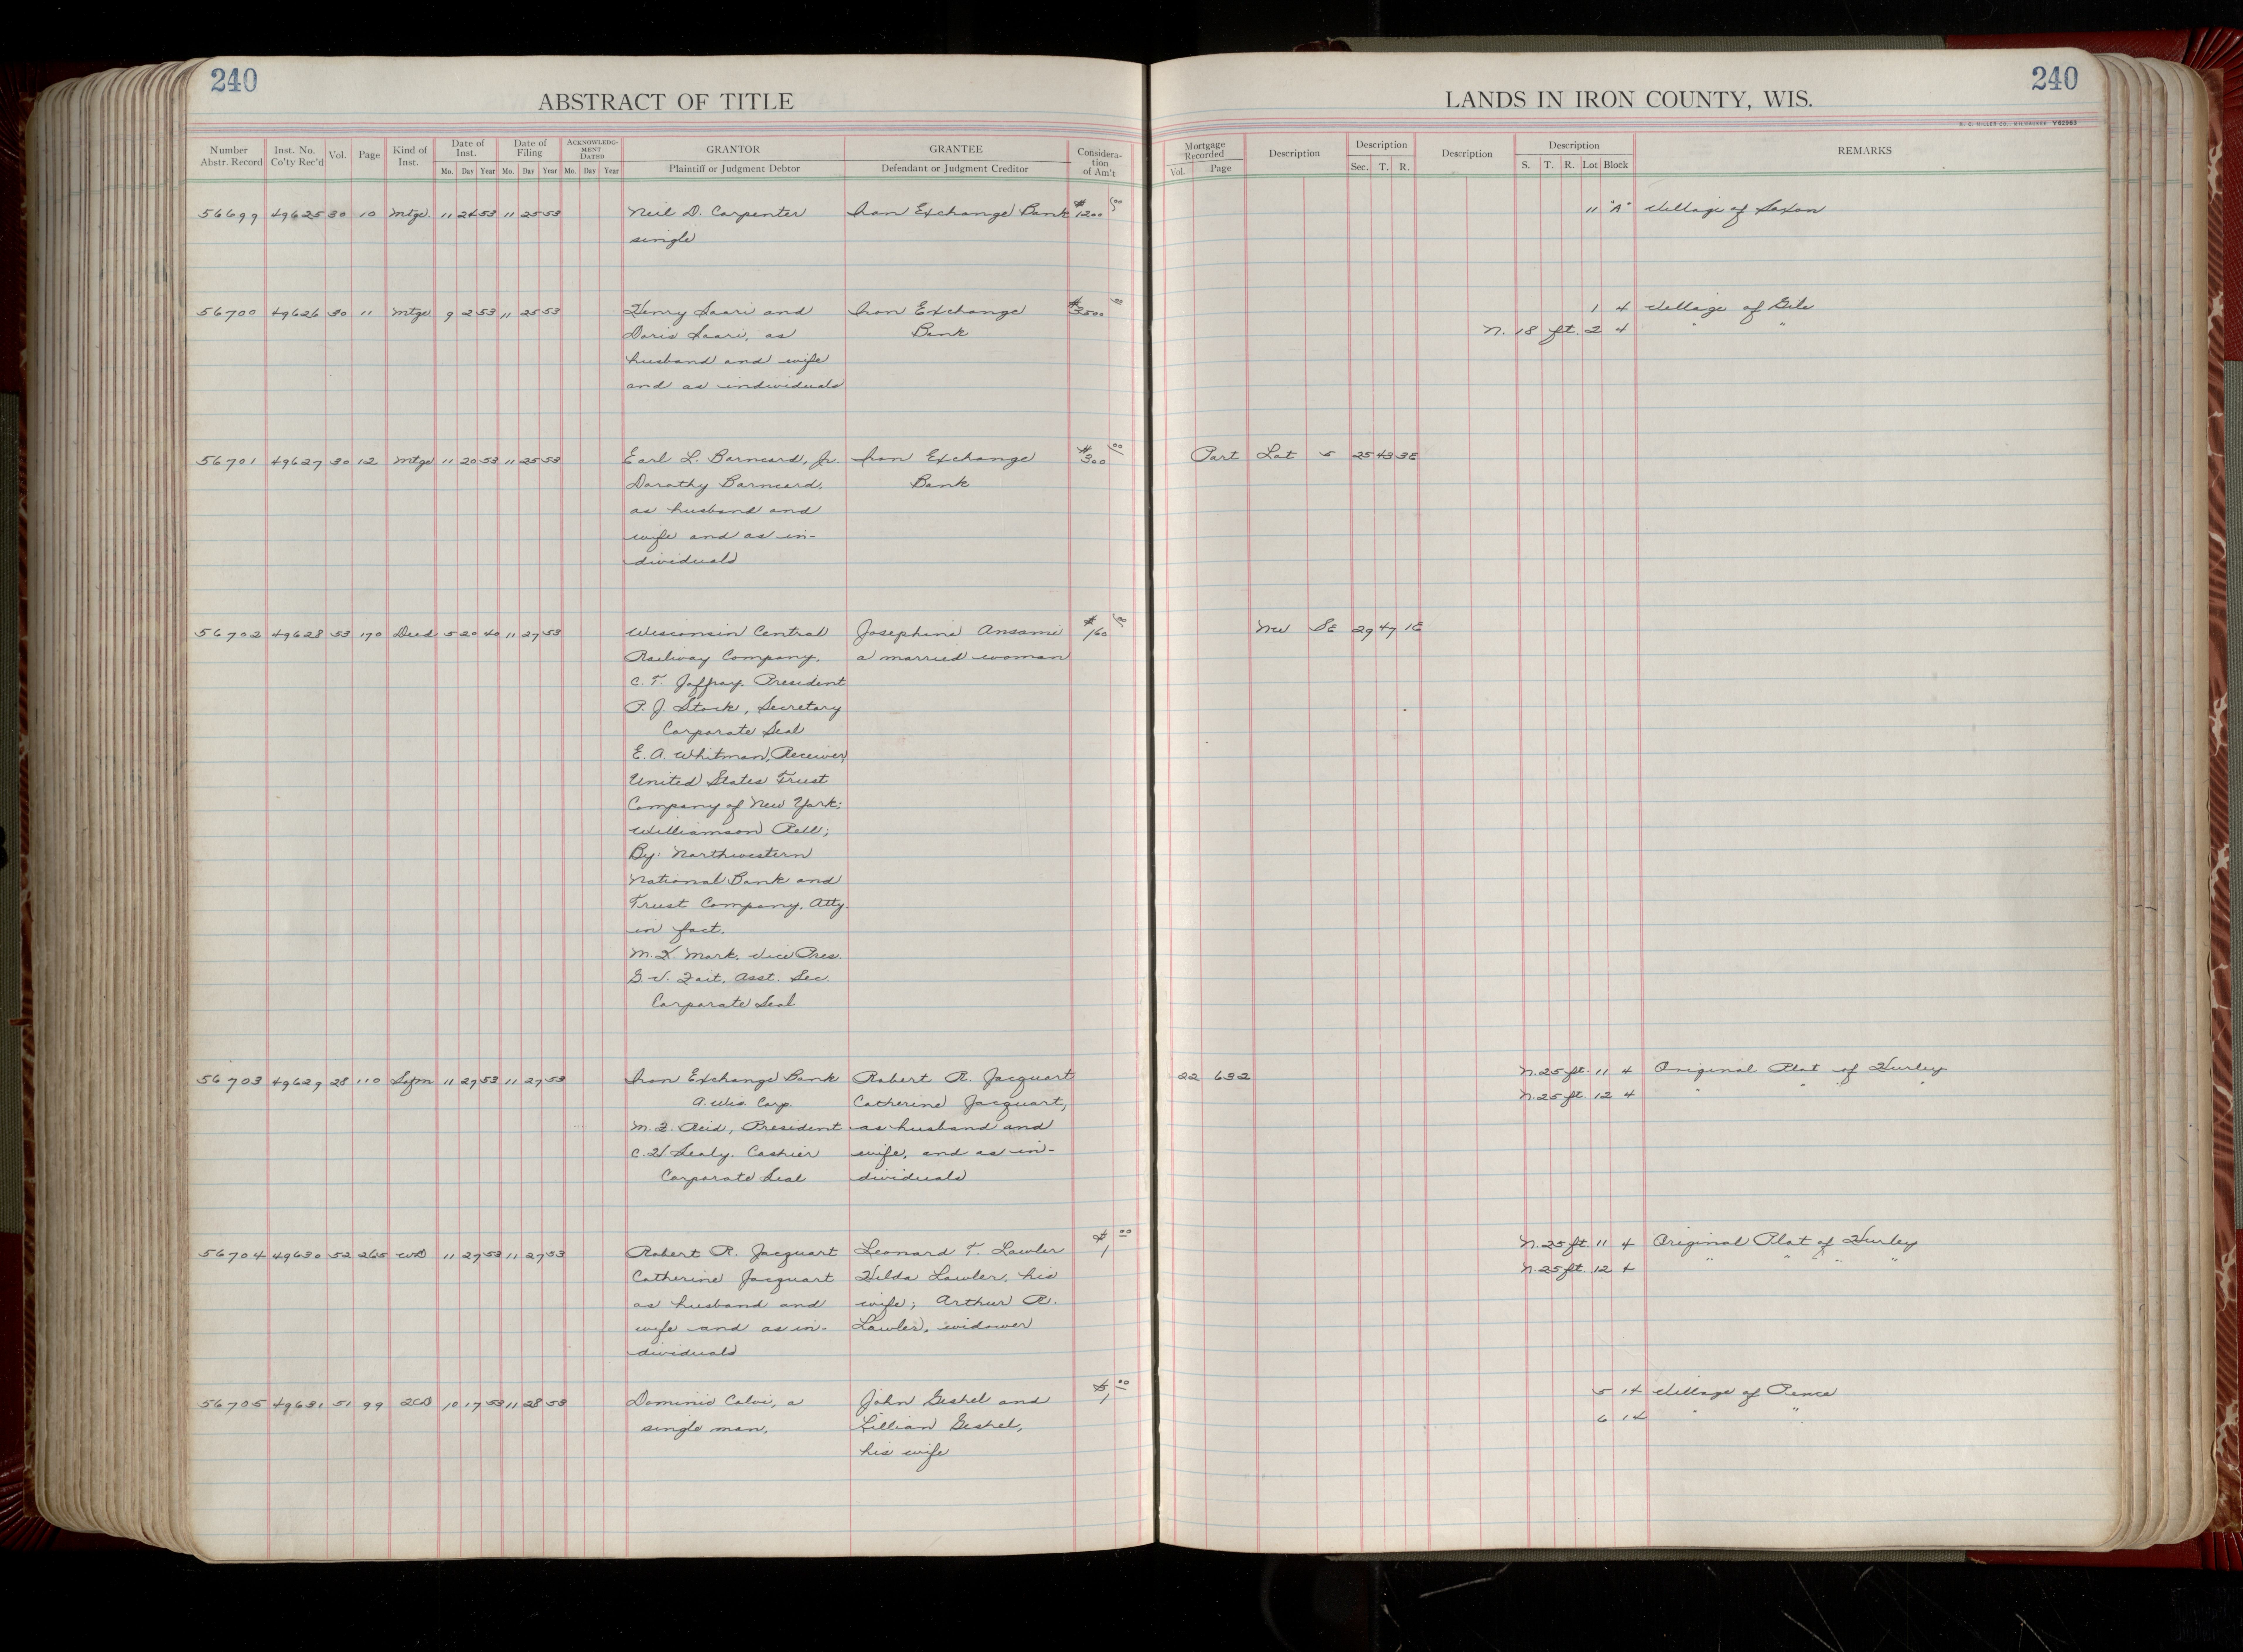 240
ABSTRACT OF TITLE
Number Abstr. Record
Inst. No. Co'ty Rec'd
Vol.
Page
Kind of Inst.
Date of Inst.
Mo. Day Year
Date of Filing
Mo. Day Year
ACKNOWLEDG-MENT DATED
Mo. Day Year
GRANTOR
Plaintiff or Judgment Debtor
GRANTEE
Defendant or Judgment Creditor
Considera-tion of Am't
56699 49625 30 10 Mtge. 11 24 53 11 25 53 Neil D. Carpenter Iron Exchange Bank $1200 00
single
56700 49626 30 11 Mtge 9 2 53 11 25 53 Henry Saari and Iron Exchange $3500 00
Doris Saari, as Bank
husband and wife
and as individuals
56701 49627 30 12 Mtge 11 20 53 11 25 53 Earl L. Barneard, Jr. Iron Exchange $300 00
Dorothy Barneard, Bank
as husband and
wife and as in-
dividuals
56702 49628 53 170 Deed 5 20 40 11 27 53 Wisconsin Central Josephine Ansami $160 00
Railway Company, a married woman
C. T. Jaffray. President
P. J. Stock, Secretary
Corporate Seal
E. A. Whitman, Receiver
United States Trust
Company of New York;
Williamson Pell;
By: Northwestern
National Bank and
Trust Company, Atty.
in fact.
M. H. Mark, Vice Pres.
Asst. Sec.
Corporate Seal
56703 49629 28 110 Safm 11 27 53 11 27 53 Iron Exchange Bank Robert R. Jacquart
A. Wis. Corp. Catherine Jacquart,
Reid, President as husband and
Sealy. Cashier wife, and as in-
Corporate Seal dividuals
56704 49630 52 265 WD 11 27 53 11 27 53 Robert R. Jacquart Leonard T. Lawler $1 00
Catherine Jacquart Hilda Lawler, his
as husband and wife; Arthur R.
wife and as in- Lawler, widower
dividuals
56705 49631 51 99 QCD 10 17 53 11 28 53 Dominic Calvi, a John Geshel and $1 00
single man, Lillian Geshel,
his wife
240
LANDS IN IRON COUNTY, WIS.
H. C. MILLER CO., MILWAUKEE Y62963
Mortgage Recorded
Vol. Page
Description
Description
Sec. T. R.
Description
Description
S. T. R. Lot Block
REMARKS
11 "A" Village of Saxon
1 4 Village of Gile
N. 18 ft. 2 4 " "
Part Lot 5 25 43 3E
NW SE 29 47 1E
22 632 N. 25 ft. 11 4 Original Plat of Hurley
N. 25 ft. 12 4 " " " "
N. 25 ft. 11 4 Original Plat of Hurley
N. 25 ft. 12 4 " " " "
5 14 Village of Pence
6 14 " "